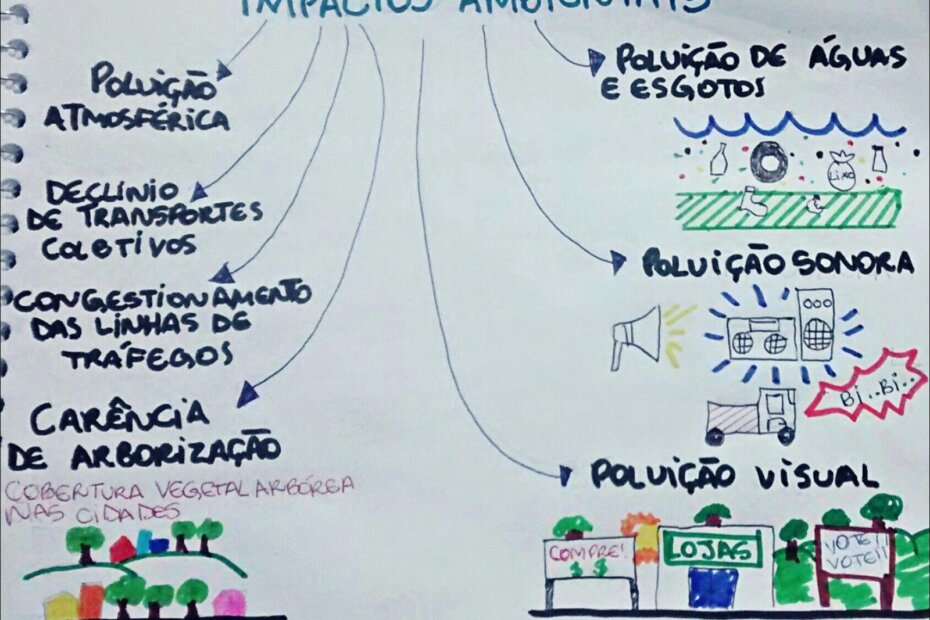 IMPACTOS AMBIENTAIS
POLUIÇÃO
ATMOSFÉRICA
DECLINIO
DE TRANSPORTES
COLETIVOS
CONGESTIONAMENTO
DAS LINHAS DE
TRÁFEGOS
CARÊNCIA
DE ARBORIZAÇÃO
COBERTURA VEGETAL ARBÓREA
NAS CIDADES
POLUIÇÃO DE ÁGUAS
E ESGOTOS
LIXO
POLUIÇÃO SONORA
Bi..Bi..
POLUIÇÃO VISUAL
COMPRE!
$ $
LOJAS
VOTE!!
VOTE!!